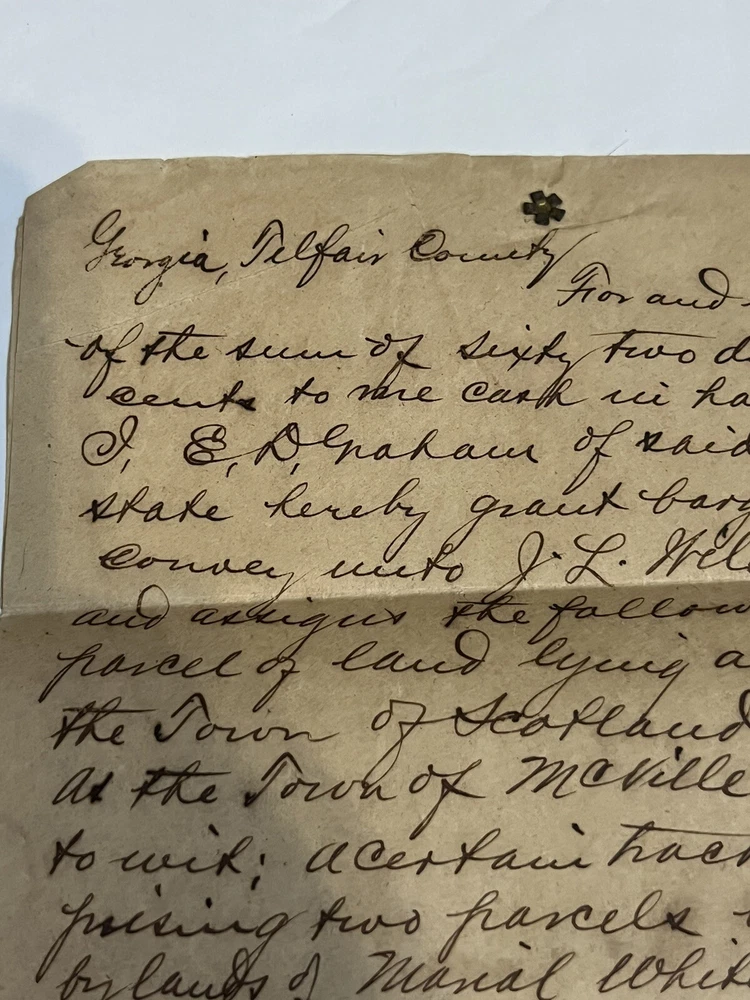 Georgia, Telfair County
For and
of the sum of sixty two d
cents to me cash in ha
I, E, D, Graham of said
state hereby grant barg
convey unto J. L. Wil
and assigns the follow
parcel of land lying a
the Town of Scotland
As the Town of McVille
to wit; a certain tract
prising two parcels
by lands of Marial Whit